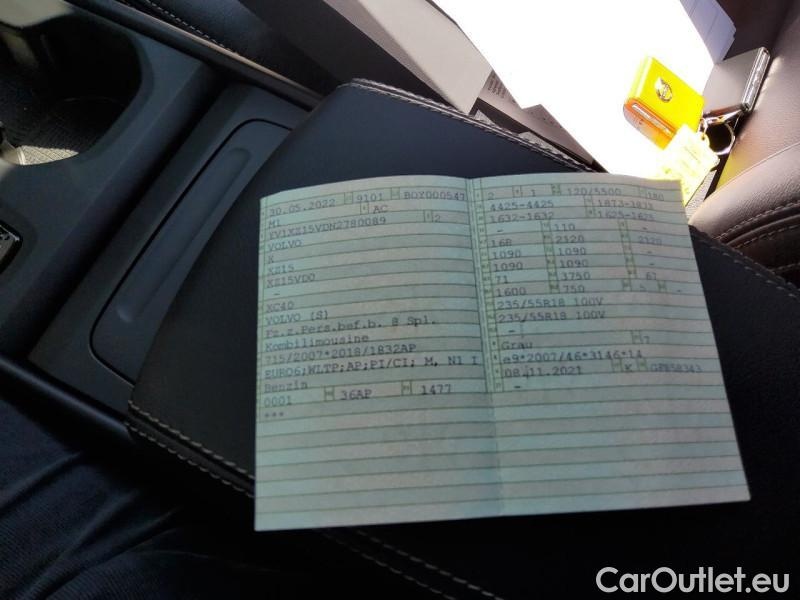 30.05.2022 9101 BOY000547
M1 AC
YV1XZ15VDN2780089 2
VOLVO
X
XZ15
XZ15VD0
-
XC40
VOLVO (S)
Fz.z.Pers.bef.b. 8 Spl.
Kombilimousine
715/2007*2018/1832AP
EURO6;WLTP;AP;PI/CI; M, N1 I
Benzin
0001 36AP 1477
***
2 1 120/5500 180
4425-4425 1873-1873
1632-1632 1625-1625
- 110 -
168 2120 2120
1090 1090 -
1090 1090 -
71 3750 67
1600 750 5 -
235/55R18 100V
235/55R18 100V
-
Grau 7
e9*2007/46*3146*14
08.11.2021 K
-
CarOutlet.eu